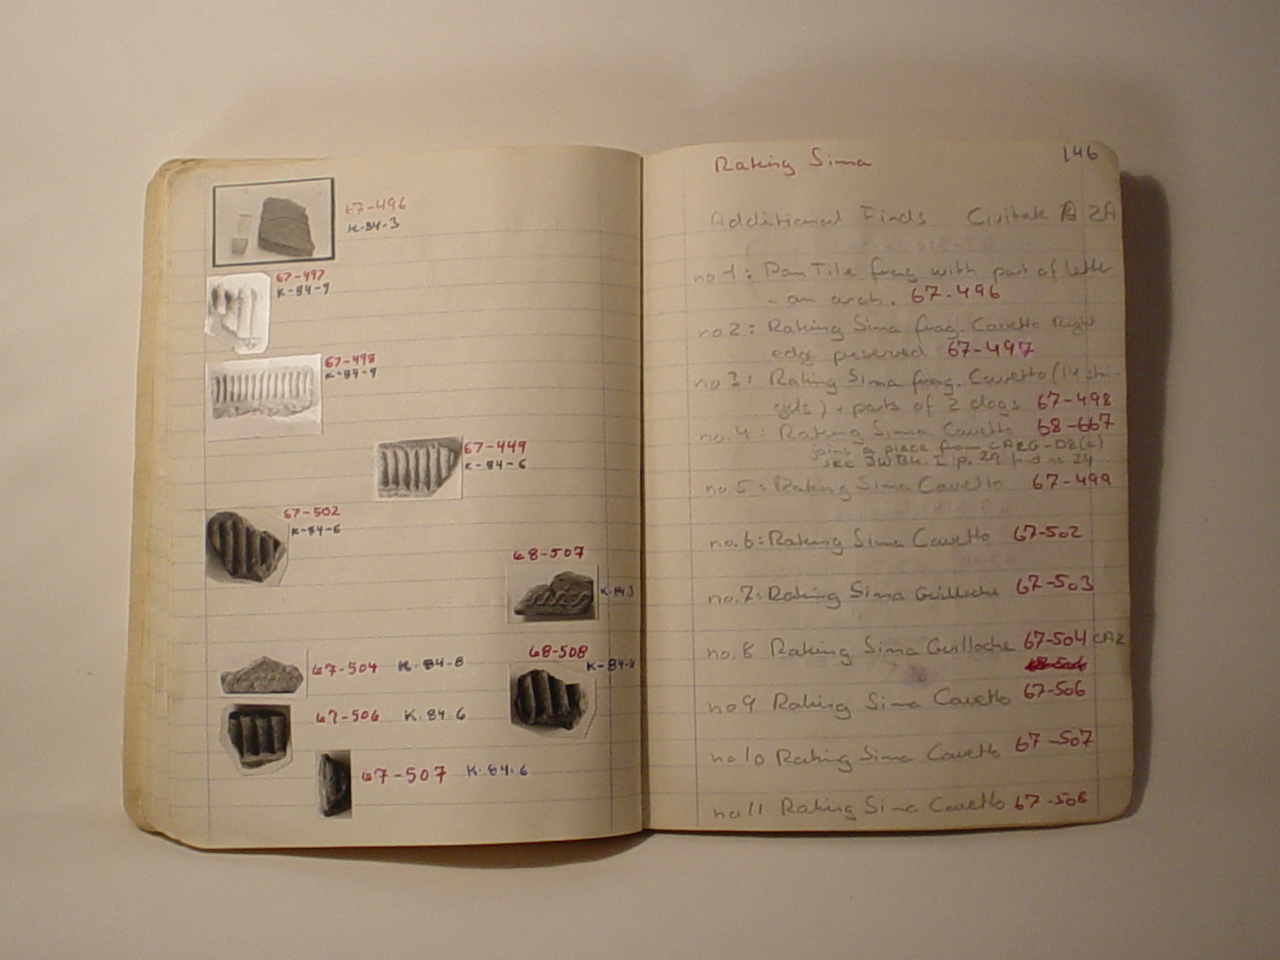 67-496
K-84-3
67-497
K-84-9
67-498
K-84-9
67-449
K-84-6
67-502
K-84-6
68-507
K-84-3
67-504 K-84-8
68-508
K-84-6
67-506 K.84.6
67-507 K.84.6
146
Raking Sima
Additional Finds Civitate A 2A
no 1: Pan Tile frag with part of letter
- an arch. 67-496
no 2: Raking Sima frag. Cavetto Right
edge preserved 67-497
no 3: Raking Sima frag. Cavetto (14 stri-
gils) + parts of 2 dogs 67-498
no. 4: Raking Sima Cavetto 68-667
joins a piece from CA2G-D2(c)
see JW Bk. I p. 29 find no 24
no 5: Raking Sima Cavetto 67-499
no. 6: Raking Sima Cavetto 67-502
no. 7: Raking Sima Guilloche 67-503
no. 8 Raking Sima Guilloche 67-504 CA2
no 9 Raking Sima Cavetto 67-506
no 10 Raking Sima Cavetto 67-507
no 11 Raking Sima Cavetto 67-508